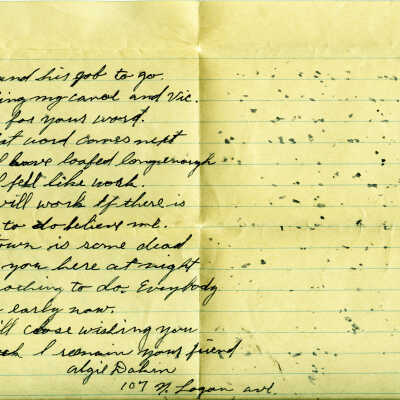 and his job to go.
ing my canol and Vic.
for your word.
word comes next
I have loafed long enough
I felt like work
will work if there is
to do believe me.
town is some dead
you here at night
nothing to do. Everybody
early now.
ll close wishing you
I remain your friend
107 N. Logan ave.